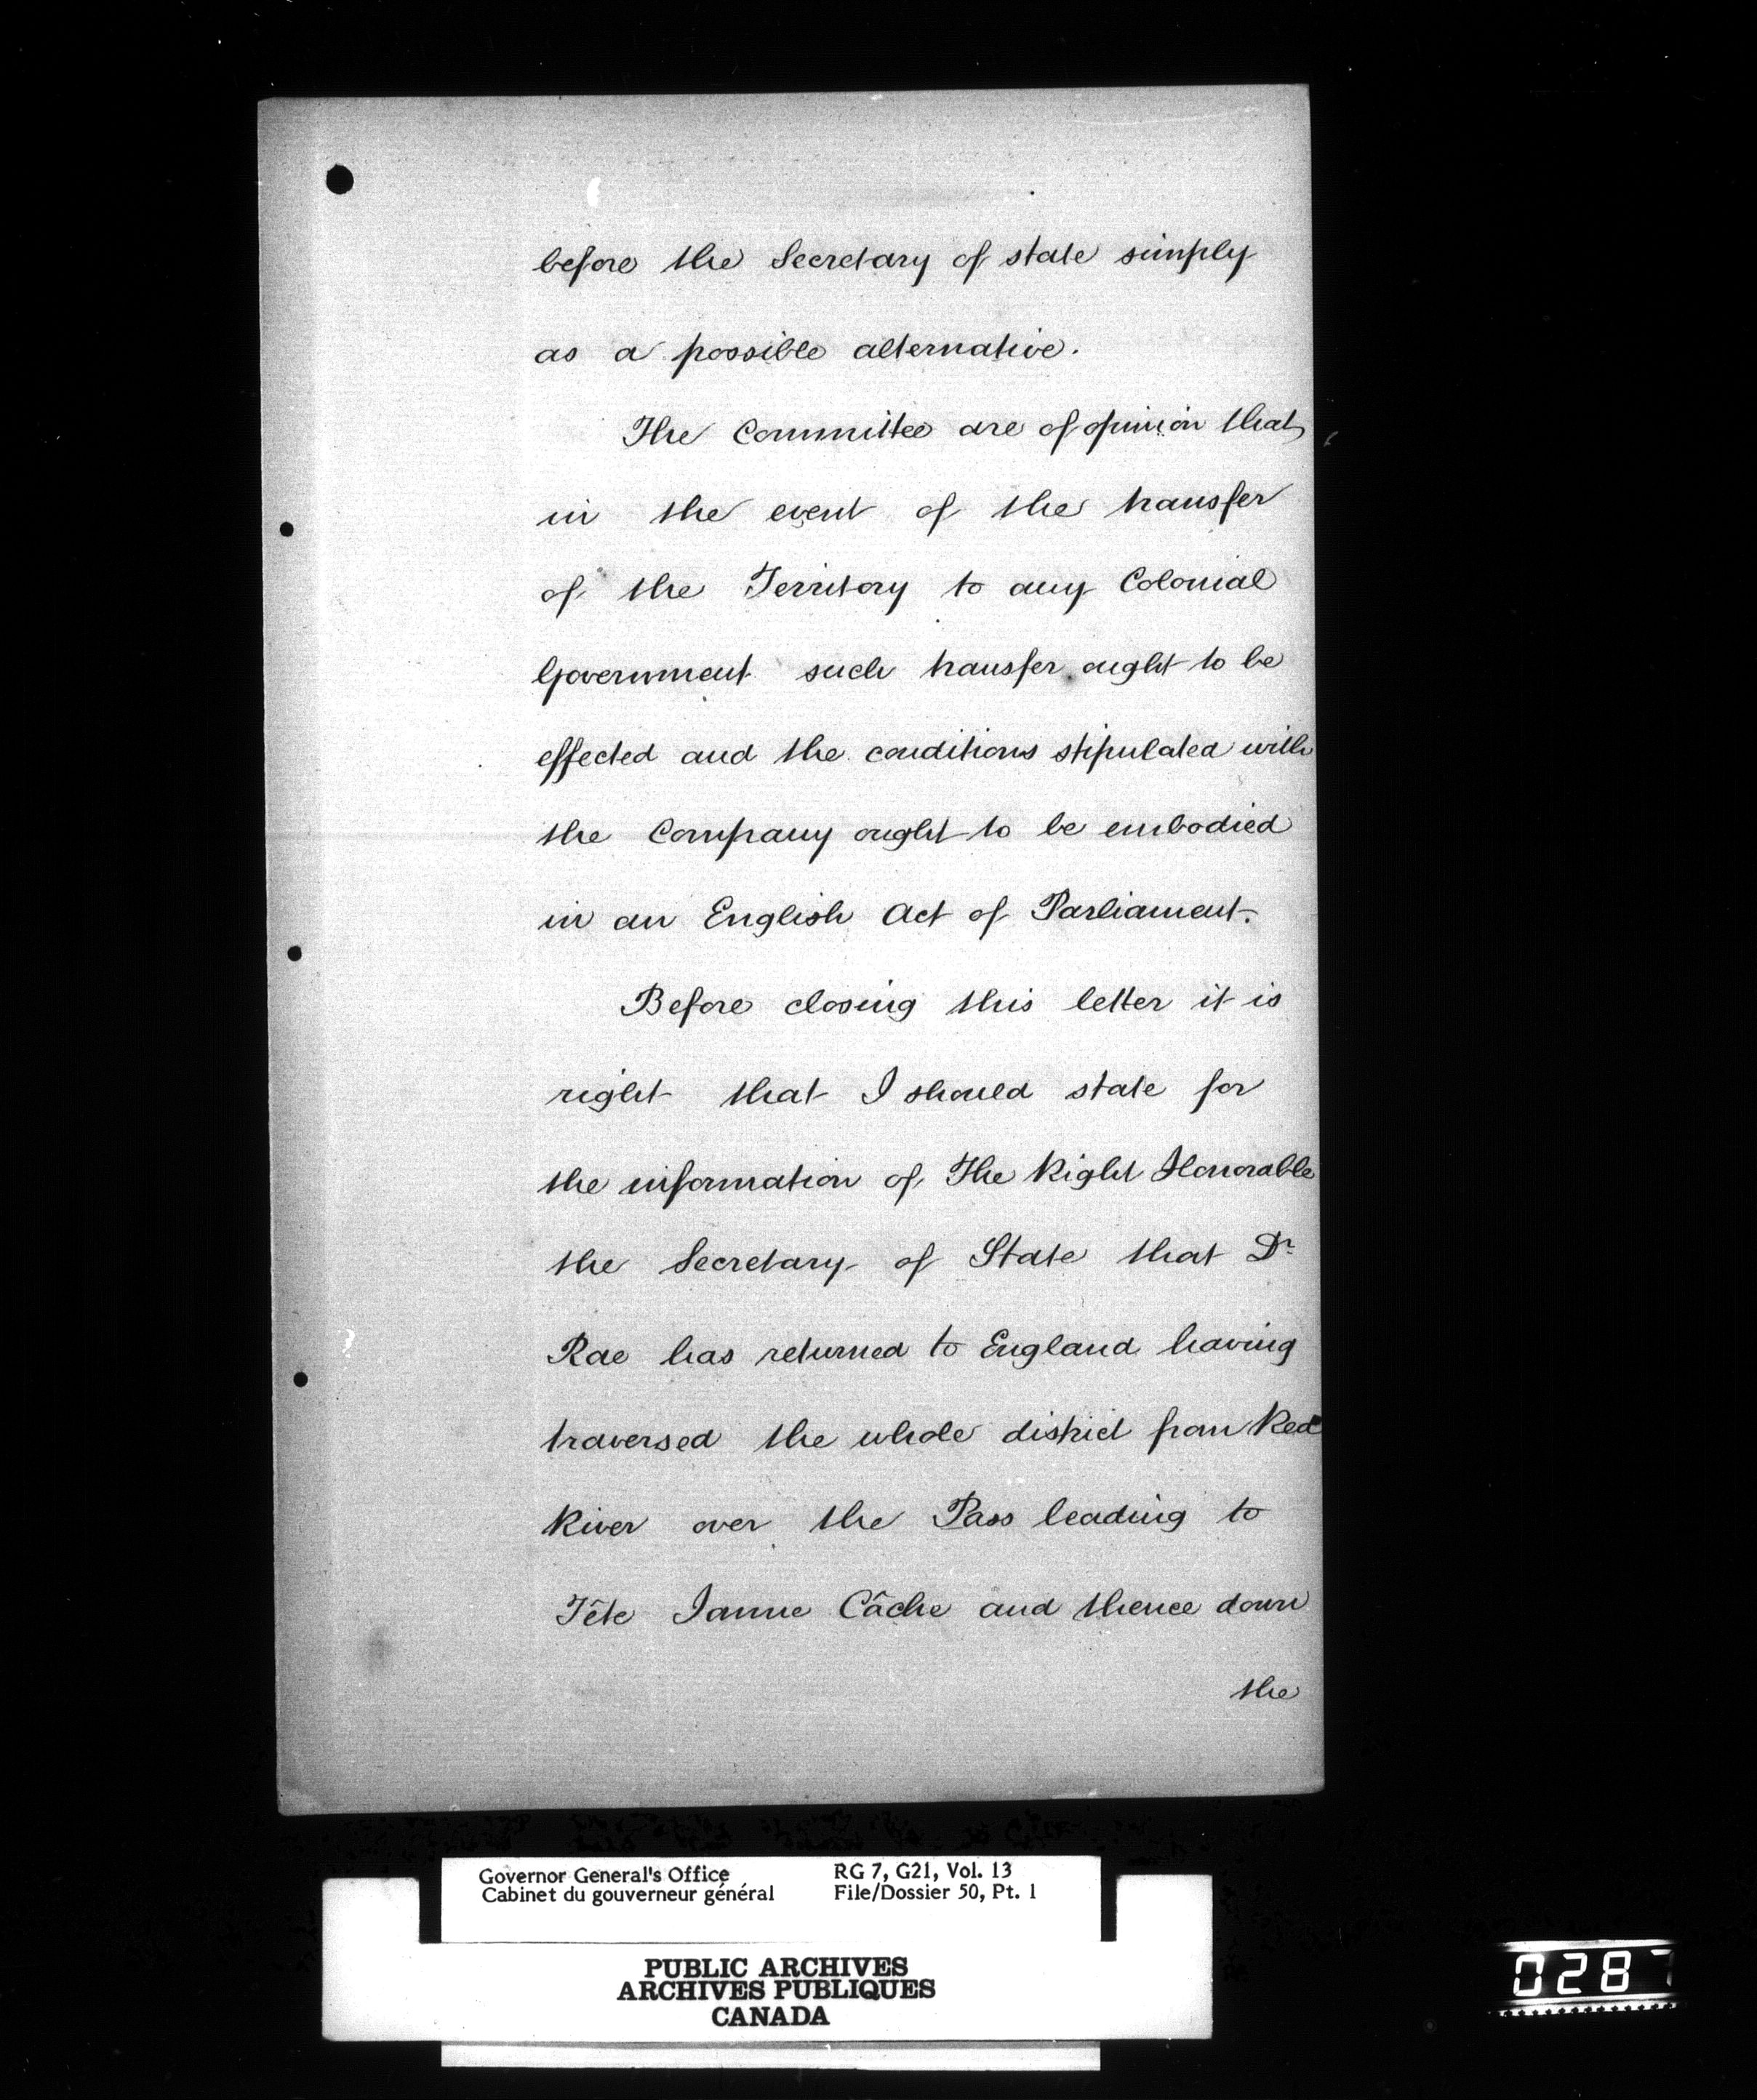 before the Secretary of state simply
as a possible alternative.
The Committee are of opinion that
in the event of the transfer
of the Territory to any Colonial
Government such transfer ought to be
effected and the conditions stipulated with
the Company ought to be embodied
in an English Act of Parliament.
Before closing this letter it is
right that I should state for
the information of The Right Honorable
the Secretary of State that Dr
Rae has returned to England having
traversed the whole district from Red
River over the Pass leading to
Tête Janne Câche and thence down
the
Governor General's Office RG 7, G21, Vol. 13
Cabinet du gouverneur général File/Dossier 50, Pt. 1
PUBLIC ARCHIVES
ARCHIVES PUBLIQUES
CANADA
0287